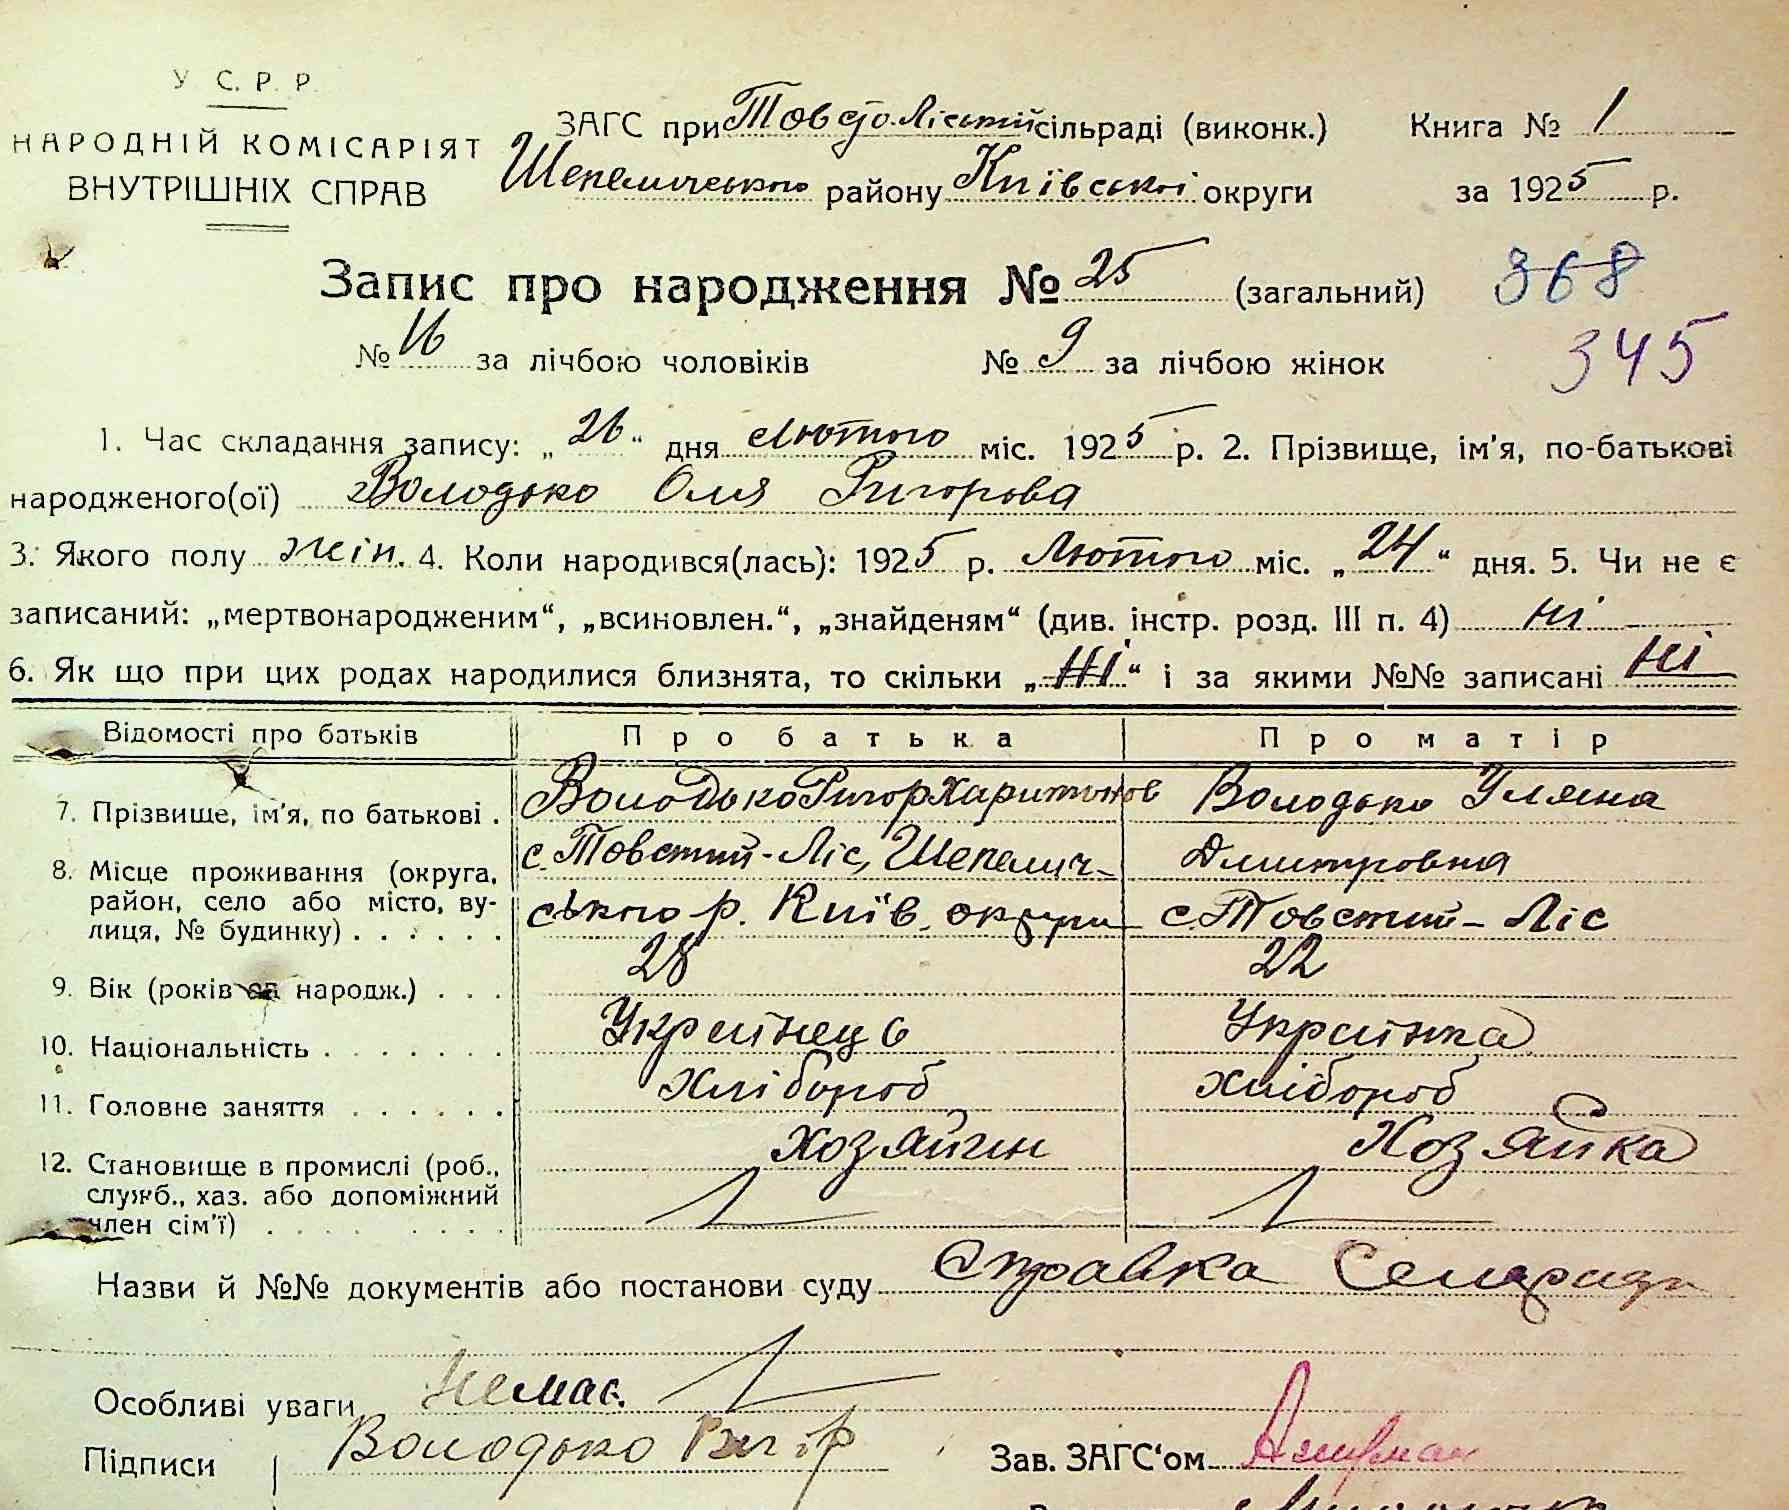 У С. Р. Р.
НАРОДНІЙ КОМІСАРІЯТ
ВНУТРІШНІХ СПРАВ
ЗАГС при Товсто-Ліській сільраді (виконк.) Книга № 1
Шепелического району Київської округи за 1925 р.
Запис про народження № 25 (загальний) 368
№ 16 за лічбою чоловіків № 9 за лічбою жінок 345
1. Час складання запису: „26“ дня Лютого міс. 1925 р. 2. Прізвище, ім'я, по-батькові
народженого(ої) Володько Оля Ригорова
3. Якого полу жін. 4. Коли народився(лась): 1925 р. Лютого міс. „24“ дня. 5. Чи не є
записаний: „мертвонародженим“, „всиновлен.“, „знайденям“ (див. інстр. розд. III п. 4) ні
6. Як що при цих родах народилися близнята, то скільки „Ні“ і за якими №№ записані Ні
Відомості про батьків Про батька Про матір
7. Прізвище, ім'я, по батькові . Володько Ригор Харитонов Володько Уляна
Дмитровна
8. Місце проживання (округа, с. Товстий-Ліс, Шепелич-
район, село або місто, ву- ського р. Київ. округи с. Товстий-Ліс
лиця, № будинку) . . . . . .
9. Вік (років народж.) . . . 28 22
10. Національність . . . . . . . Українець Українка
11. Головне заняття . . . . . . Хлібороб Хлібороб
12. Становище в промислі (роб., Хозяйин Хозяйка
служб., хаз. або допоміжний
член сім'ї) . . . . . . . .
Назви й №№ документів або постанови суду Справка Сельради
Особливі уваги Немає.
Підписи Володько Ригір Зав. ЗАГС‘ом